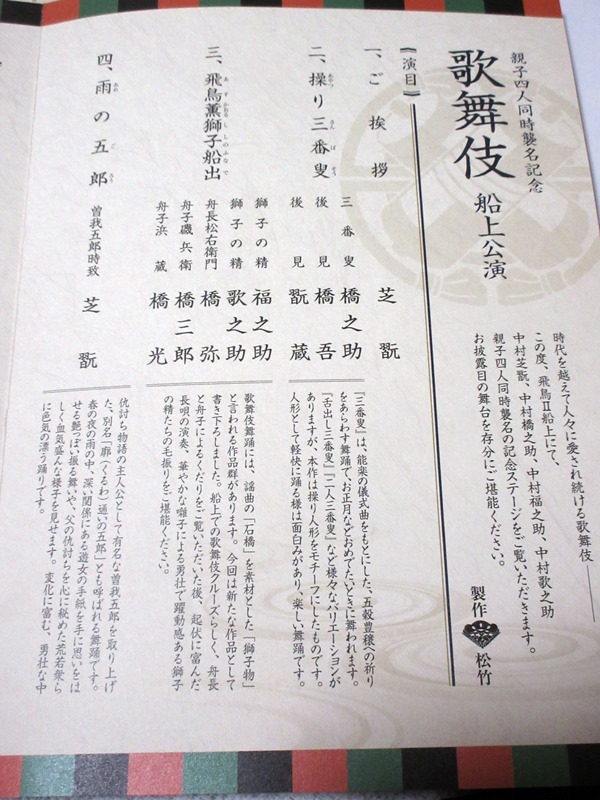 親子四人同時襲名記念
歌舞伎 船上公演
時代を越えて人々に愛され続ける歌舞伎――
この度、飛鳥Ⅱ船上にて、
中村芝翫、中村橋之助、中村福之助、中村歌之助
親子四人同時襲名の記念ステージをご覧いただきます。
お披露目の舞台を存分にご堪能ください。
製作 松竹
《演目》
一、ご挨拶
芝翫
二、操り三番叟
あやつ さんばそう
三番叟 橋之助
後見 橋吾
後見 翫蔵
「三番叟」は、能楽の儀式曲をもとにした、五穀豊穣への祈り
をあらわす舞踊で、お正月などおめでたいときに舞われます。
「舌出し三番叟」「二人三番叟」など様々なバリエーションが
ありますが、本作は操り人形をモチーフにしたものです。
人形として軽快に踊る様は面白みがあり、楽しい舞踊です。
三、飛鳥薫獅子船出
あすかかおるししのふなで
獅子の精 福之助
獅子の精 歌之助
舟長松右衛門 橋弥
舟子磯兵衛 橋三郎
舟子浜蔵 橋光
歌舞伎舞踊には、謡曲の「石橋」を素材とした「獅子物」
と言われる作品群があります。今回は新たな作品として
書き下ろしました。船上での歌舞伎クルーズらしく、舟長
と舟子によるくだりをご覧いただいた後、起伏に富んだ
長唄の演奏、華やかな囃子による勇壮で躍動感ある獅子
の精たちの毛振りをご堪能ください。
四、雨の五郎
あめ ごろう
曽我五郎時致 芝翫
仇討ち物語の主人公として有名な曽我五郎を取り上げ
た、別名「廓（くるわ）通いの五郎」とも呼ばれる舞踊です。
春の夜の雨の中、深い関係にある遊女の手紙を手に思いをは
せる艶っぽい振る舞いや、父の仇討ちを心に秘めた荒若衆ら
しく血気盛んな様子を見せます。変化に富む、勇壮な中
に色気の漂う踊りです。